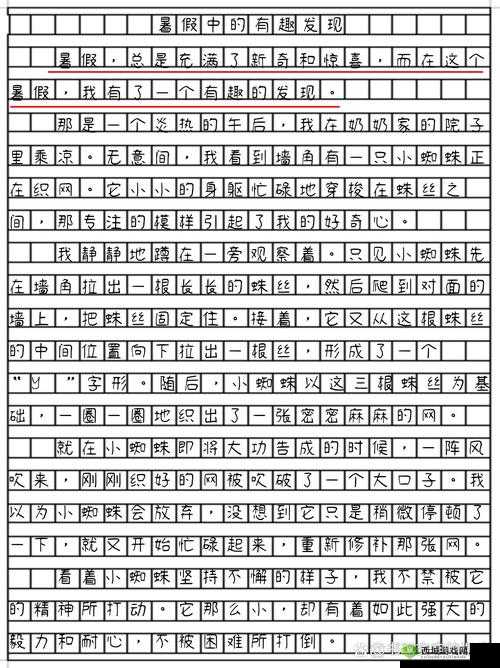 暑假中的有趣发现
暑假，总是充满了新奇和惊喜，而在这个
暑假，我有了一个有趣的发现。
那是一个炎热的午后，我在奶奶家的院子
里乘凉。无意间，我看到墙角有一只小蜘蛛正
在织网。它小小的身躯忙碌地穿梭在蛛丝之
间，那专注的模样引起了我的好奇心。
我静静地蹲在一旁观察着。只见小蜘蛛先
在墙角拉出一根长长的蛛丝，然后爬到对面的
墙上，把蛛丝固定住。接着，它又从这根蛛丝
的中间位置向下拉出一根丝，形成了一个
“Y ”字形。随后，小蜘蛛以这三根蛛丝为基
础，一圈一圈地织出了一张密密麻麻的网。
就在小蜘蛛即将大功告成的时候，一阵风
吹来，刚刚织好的网被吹破了一个大口子。我
以为小蜘蛛会放弃，没想到它只是稍微停顿了
一下，就又开始忙碌起来，重新修补那张网。
看着小蜘蛛坚持不懈的样子，我不禁被它
的精神所打动。它那么小，却有着如此强大的
毅力和耐心，不被困难所打倒。
西城游戏网